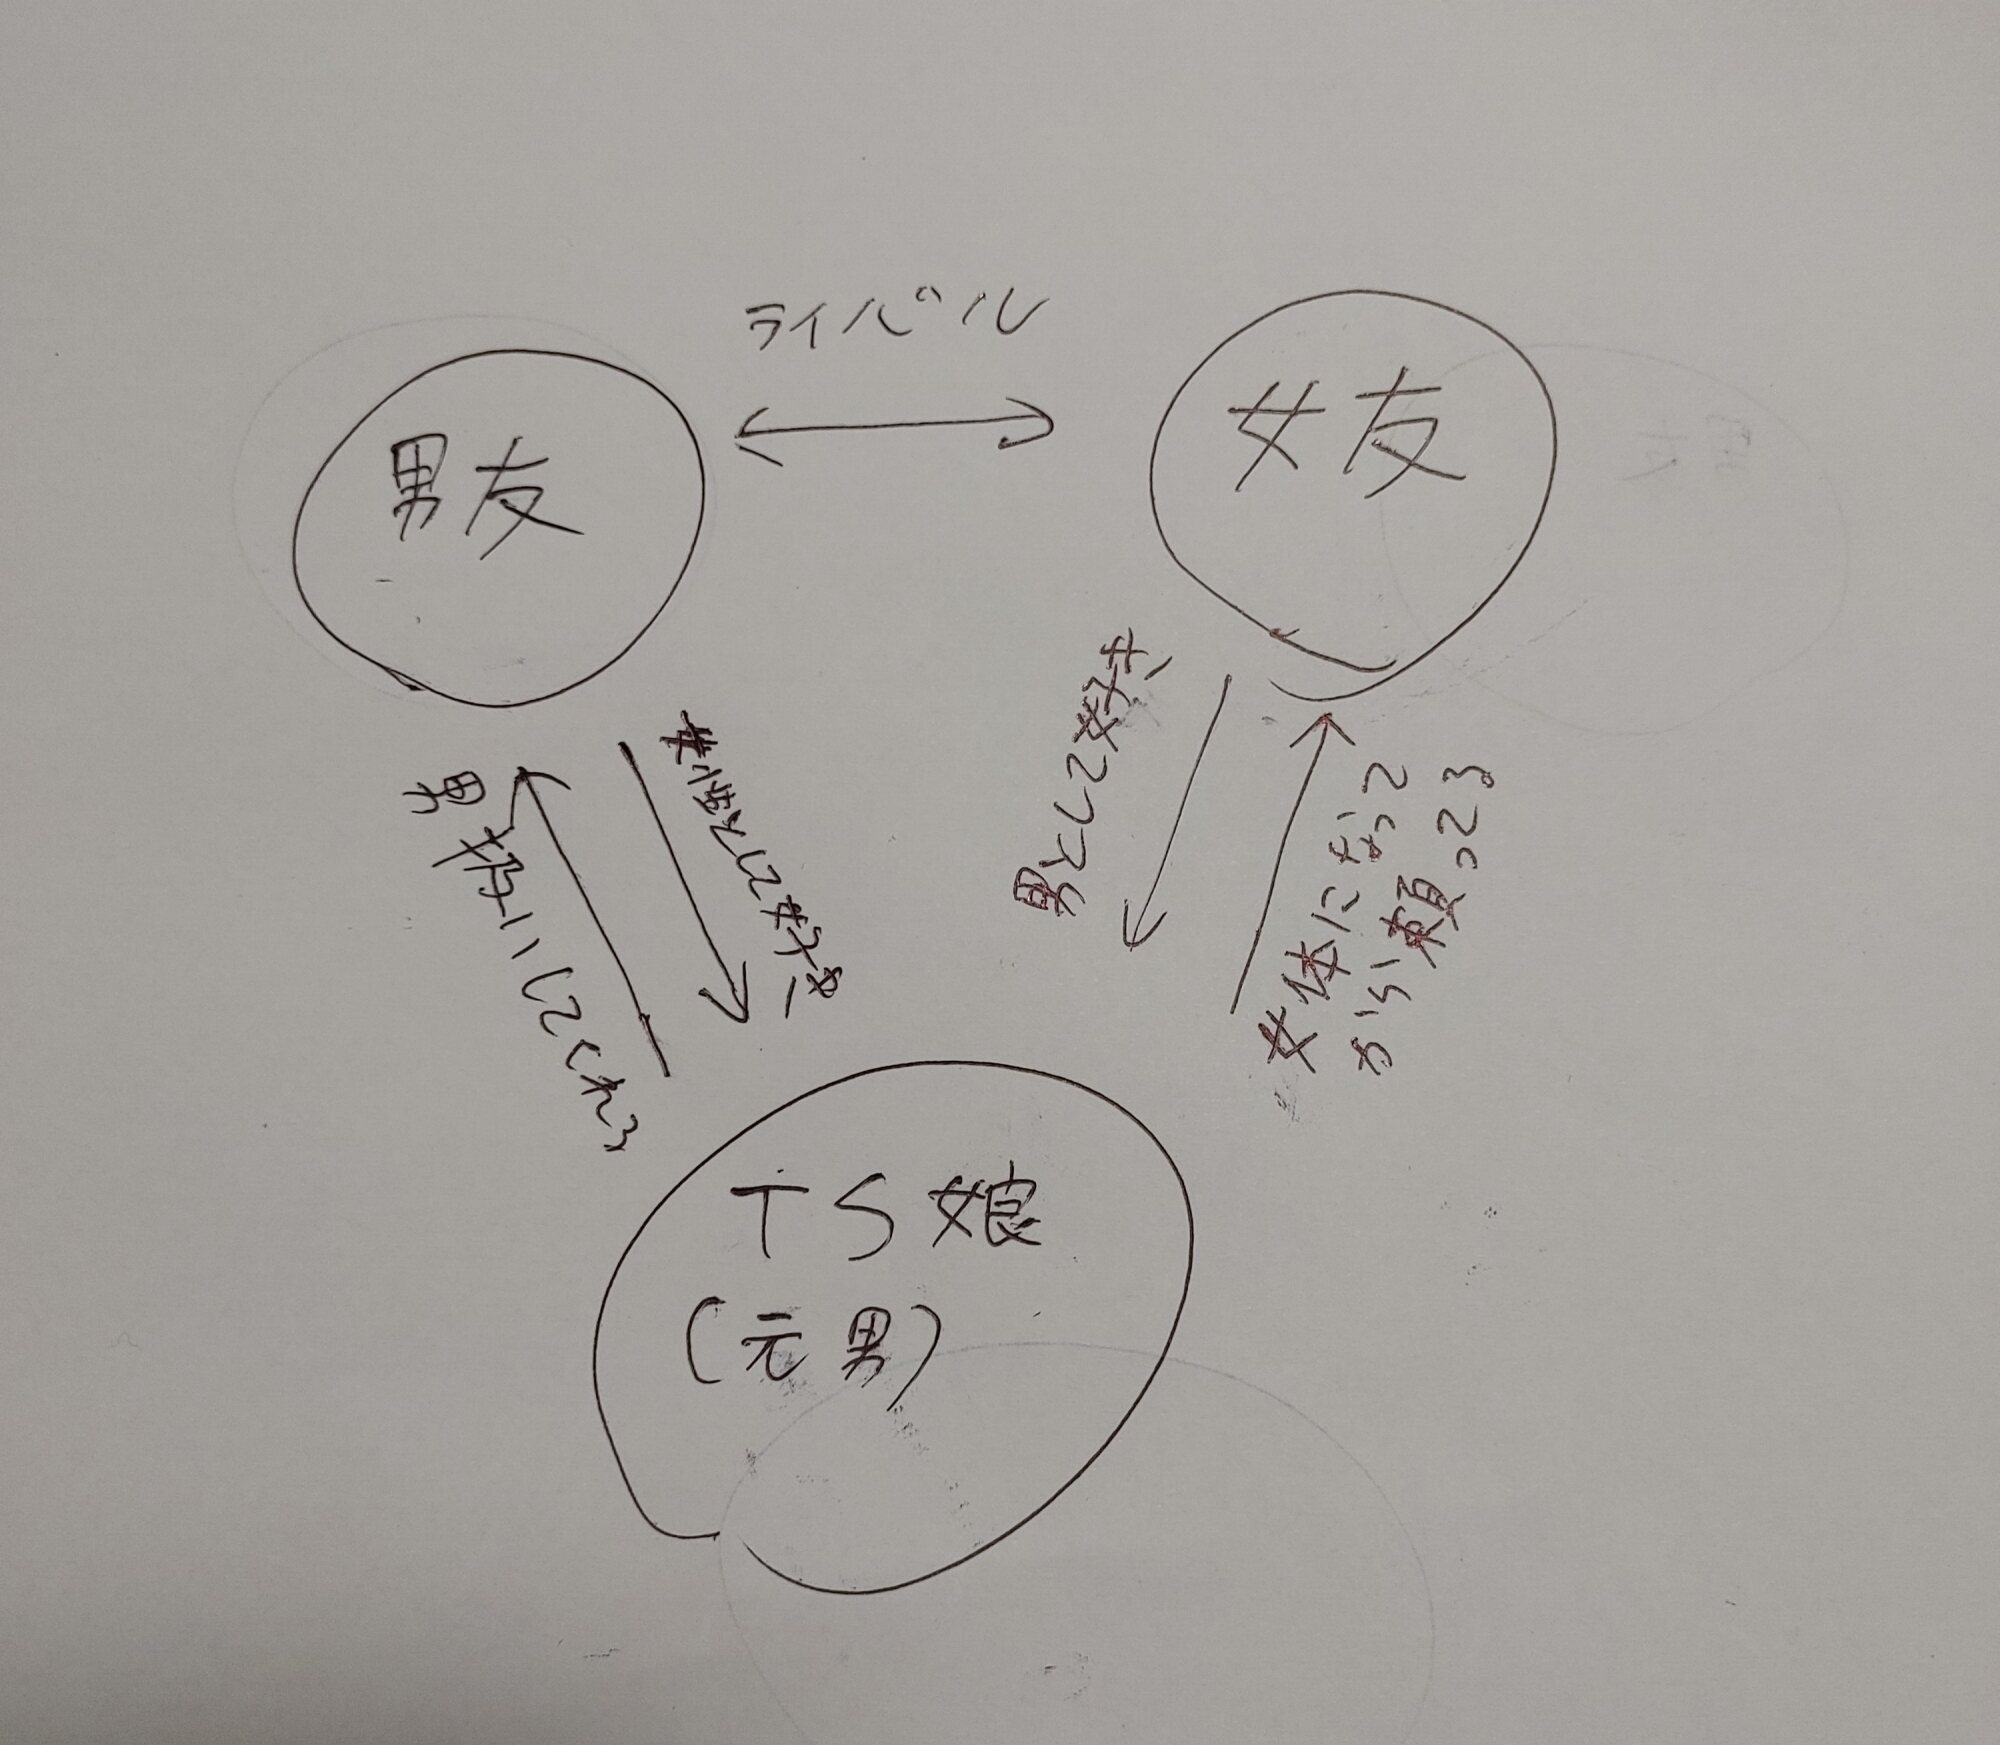 ライバル
男友
女友
男扱いしてくれる
女性として好き
男として好き
女体になって
から頼ってる
TS娘
(元男)